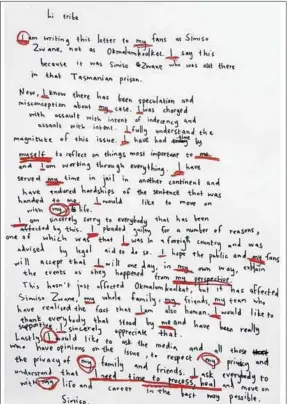 hi tribe
I am writing this letter to my fans as Simiso
Zwane, not as Okmalumkoolkat. I say this
because it was Simiso Zwane who was out there
in that Tasmanian prison.
Now, I know there has been speculation and
misconception about my case. I was charged
with assault with intent of indecency and
assault with intent. I fully understand the
magnitude of this issue. I have had time by
myself to reflect on things most important to me
and I am working through everything. I have
served my time in jail in another continent and
have endured hardships of the sentence that was
handed to me. I would like to move on
with my life.
I am sincerely sorry to everybody that has been
affected by this. I pleaded guilty for a number of reasons,
one of which was that I was in a foreign country and was
advised by legal aid to do so. I hope the public and fans
will accept that I will one day, in my own way, explain
the events as they happened from my perspective
This hasn't just affected Okmalumkoolkat, but it has affected
Simiso Zwane, my whole family, my friends, my team who
have realised the fact that I am also human. I would like to
thank everybody that stood by me and have been really
supportive. I sincerely appreciate that
Lastly I would like to ask the media and all those
who have opinions on the issue, to respect my privacy and
the privacy of my family and friends. I ask everybody to
understand that I need time to process, heal and move on
with my life and career in the best way possible.
Simiso.